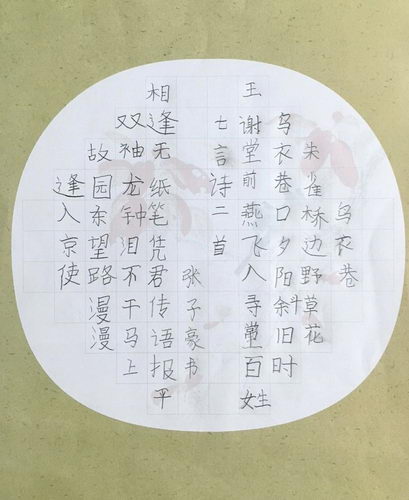 乌衣巷
朱雀桥边野草花
乌衣巷口夕阳斜旧时
王谢堂前燕飞入寻常百姓
七言诗二首
张子豪书
相逢无纸笔凭君传语报平
双袖龙钟泪不干马上
故园东望路漫漫
逢入京使